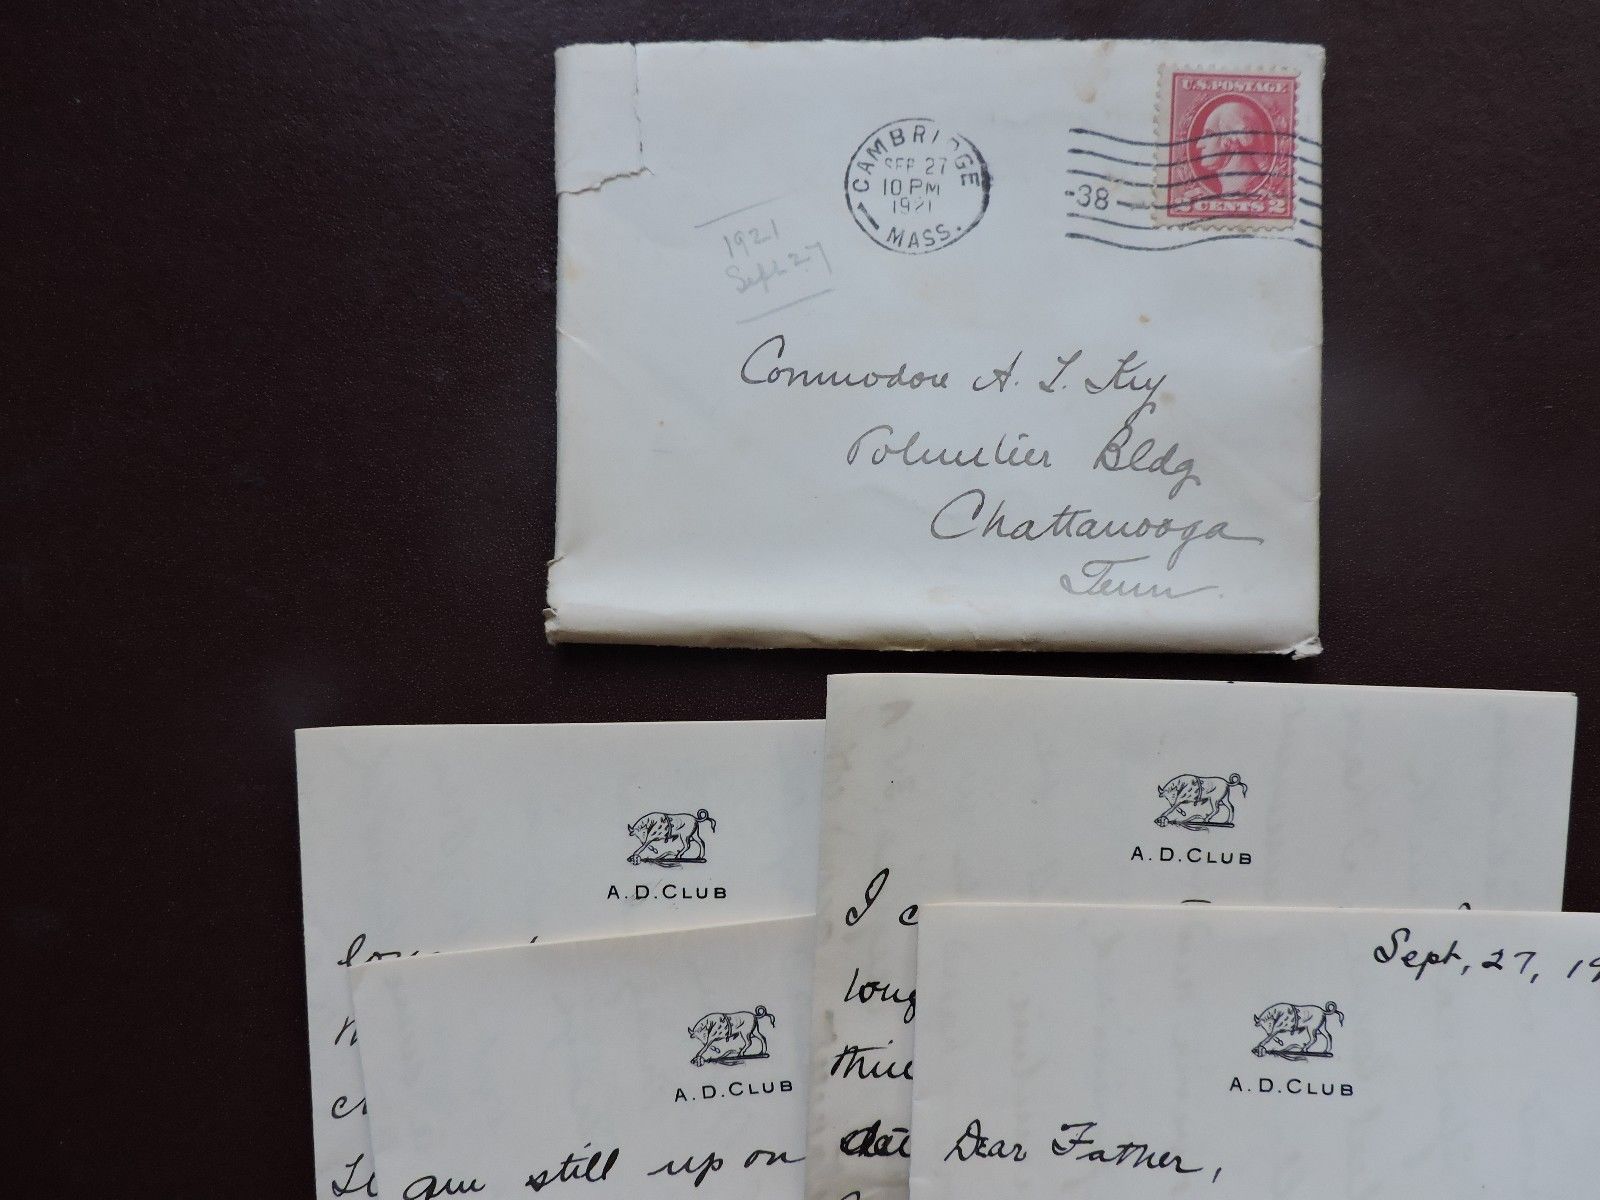 U.S. POSTAGE
2 CENTS 2
CAMBRIDGE
SEP 27
10 PM
1921
MASS.
-38-
1921
Sept 27
Commodore A. L. Key
Volunteer Bldg
Chattanooga
Tenn.
A. D. CLUB
A. D. CLUB
I
long
A. D. CLUB
am still up on
Sept, 27, 19
A. D. CLUB
Dear Father,